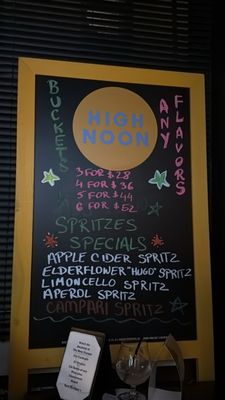 BUCKETS
HIGH
NOON
ANY
FLAVORS
3 FOR $28
4 FOR $36
5 FOR $44
6 FOR $52
SPRITZES
SPECIALS
APPLE CIDER SPRITZ
ELDERFLOWER "HUGO" SPRITZ
LIMONCELLO SPRITZ
APEROL SPRITZ
CAMPARI SPRITZ